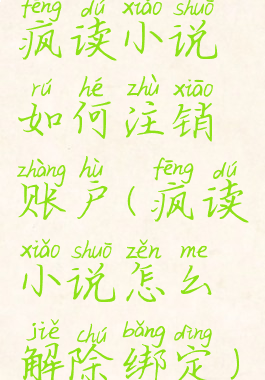 fēng dú xiǎo shuō
疯读小说
rú hé zhù xiāo
如何注销
zhàng hù fēng dú
账户(疯读
xiǎo shuō zěn me
小说怎么
jiě chú bǎng dìng
解除绑定)